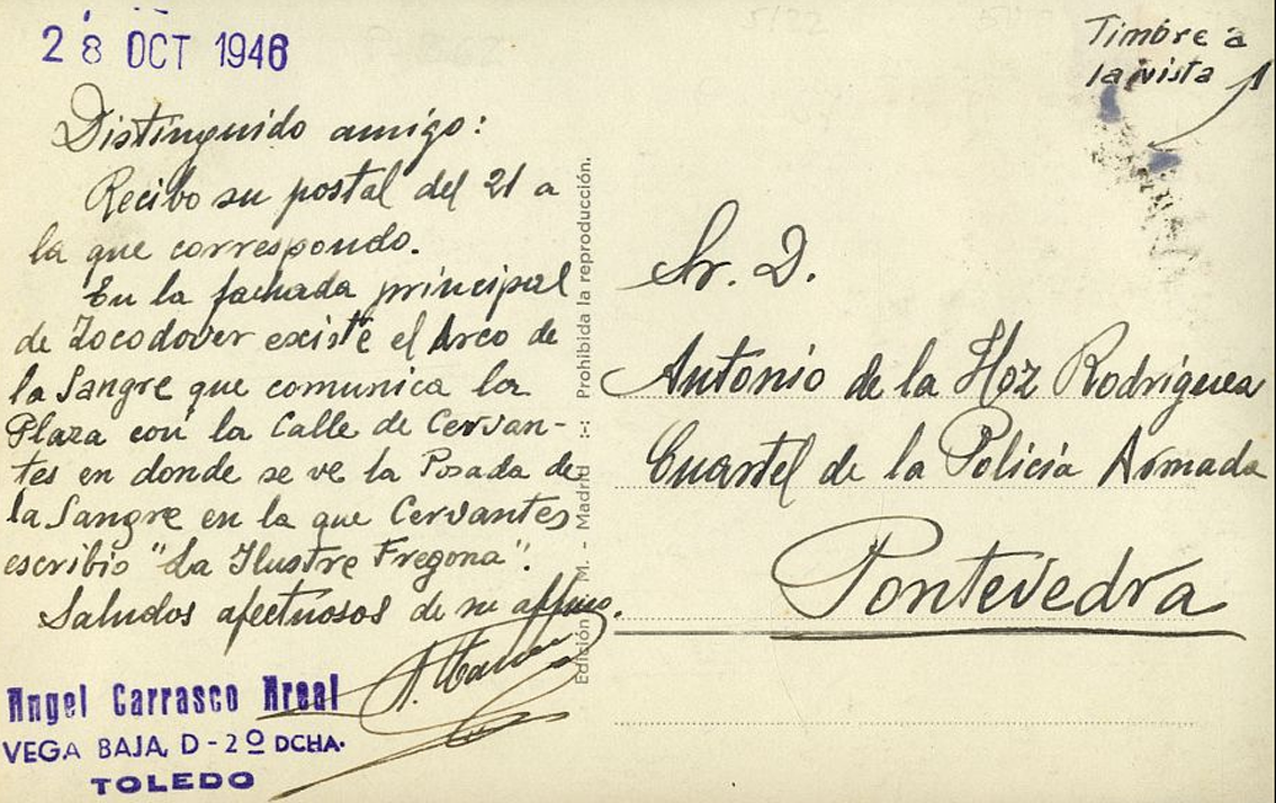 28 OCT 1946
Timbre a
la vista
Distinguido amigo:
Recibo su postal del 21 a
la que correspondo.
En la fachada principal
de Zocodover existe el Arco de
la Sangre que comunica la
Plaza con la Calle de Cervan-
tes en donde se ve la Posada de
la Sangre en la que Cervantes
escribio "La Ilustre Fregona".
Saludos afectuosos de su affmo.
Angel Carrasco Areal
VEGA BAJA, D-2º DCHA.
TOLEDO
Edición M. - Madrid :-: Prohibida la reproducción.
Sr. D.
Antonio de la Hoz Rodriguez
Cuartel de la Policía Armada
Pontevedra